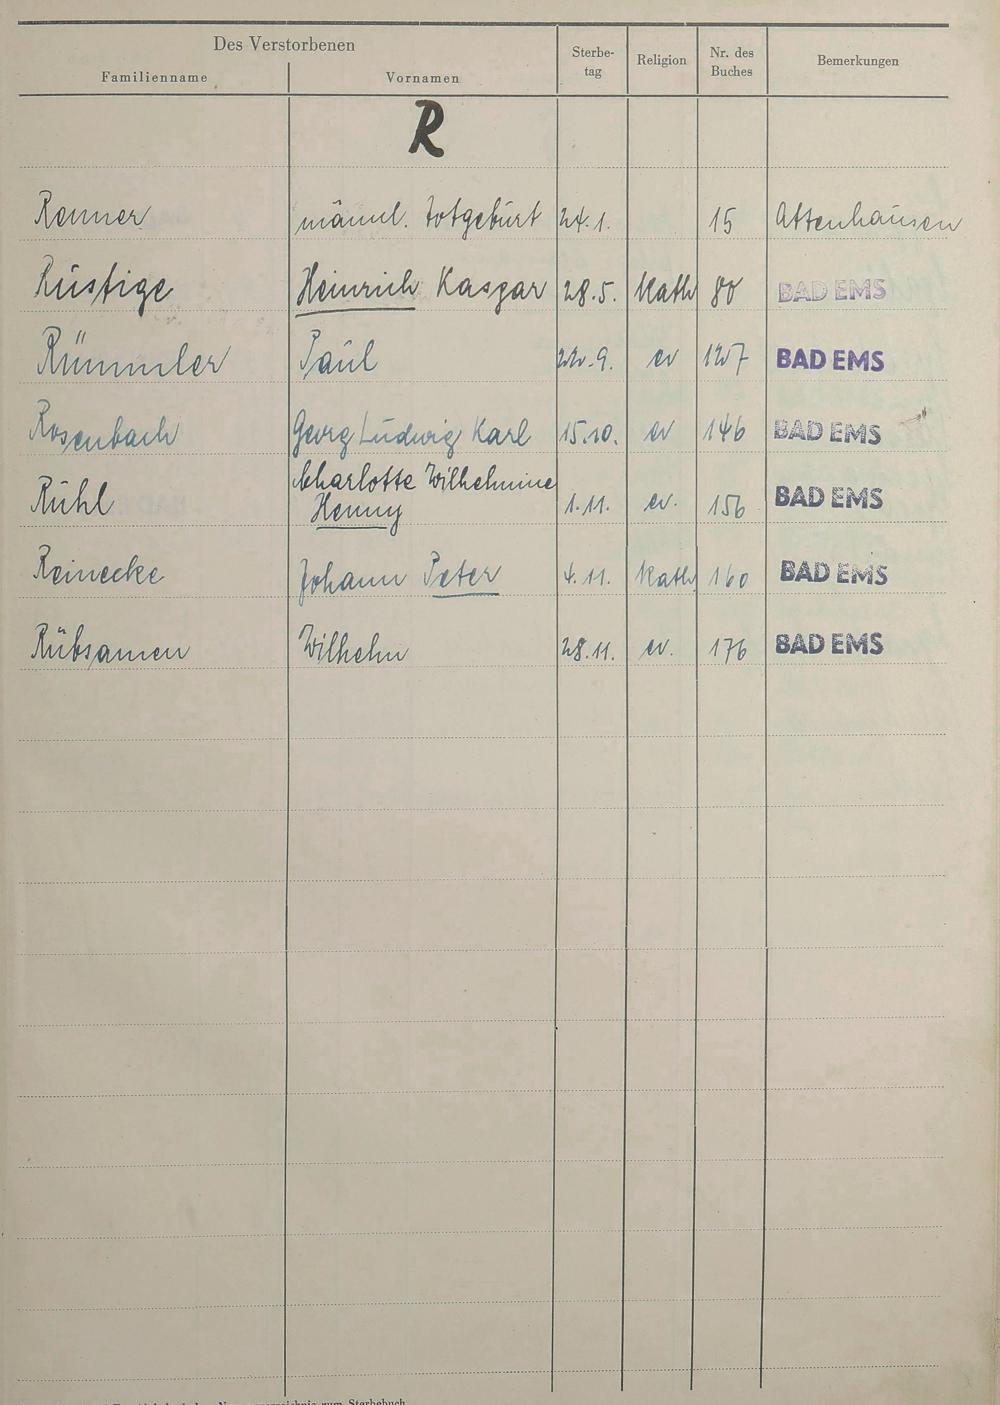 Des Verstorbenen
Familienname Vornamen Sterbe-tag Religion Nr. des Buches Bemerkungen
R
Renner männl. Totgeburt 24.1. 15 Attenhausen
Rüstige Heinrich Kaspar 28.5. kath 80 BAD EMS
Rümmler Paul 22.9. ev 127 BAD EMS
Rosenbach Georg Ludwig Karl 15.10. ev 146 BAD EMS
Charlotte Wilhelmine
Rühl Henny 1.11. ev. 156 BAD EMS
Reinecke Johann Peter 4.11. kath 160 BAD EMS
Rübsamen Wilhelm 28.11. ev. 176 BAD EMS
zum Sterbebuch